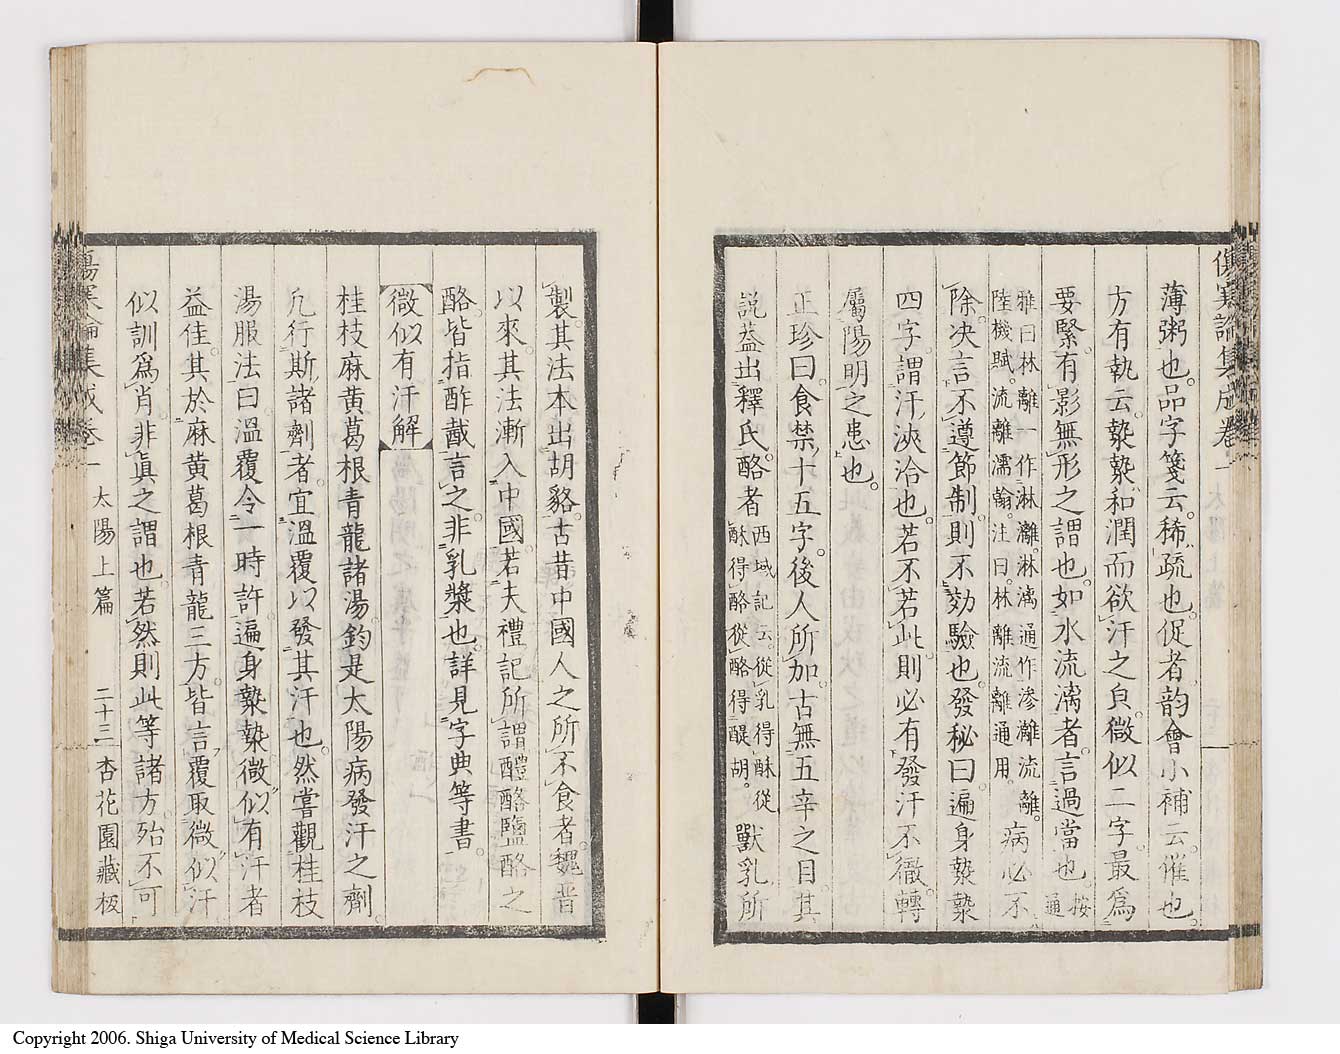 傷寒論集成卷一
薄粥也。品字箋云。稀。疏也。促者。韵會小補云。催也。
方有執云。漐漐。和潤而欲汗之皃。微似二字最爲
要緊。有影無形之謂也。如水流漓者。言過當也。按通
雅曰。林離一作淋灕。淋漓通作滲灕流離。
陸機賦。流離濡翰。注曰。林離流離通用。病必不
除。决言不遵節制。則不効驗也。發秘曰。遍身漐漐
四字。謂汗浹洽也。若不若此。則必有發汗不徹。轉
屬陽明之患也。
正珍曰。食禁十五字。後人所加。古無五辛之目。其
說葢出釋氏。酪者西域記云。從乳得酥。從
酥得酪。從酪得醍胡。獸乳所
製。其法本出胡貉。古昔中國人之所不食者。魏晋
以來。其法漸入中國。若夫禮記所謂醴酪鹽酪之
酪。皆指酢酨言之。非乳漿也。詳見字典等書。
微似有汗解
桂枝麻黄葛根青龍諸湯。鈞是太陽病發汗之劑。
凡行斯諸劑者。宜溫覆以發其汗也。然嘗觀桂枝
湯服法。曰溫覆令一時許。遍身漐漐。微似有汗者
益佳。其於麻黄葛根青龍三方。皆言覆取微似汗
似訓爲肖。非眞之謂也。若然則此等諸方。殆不可
傷寒論集成卷一 太陽上篇 二十三 杏花園藏板
Copyright 2006. Shiga University of Medical Science Library